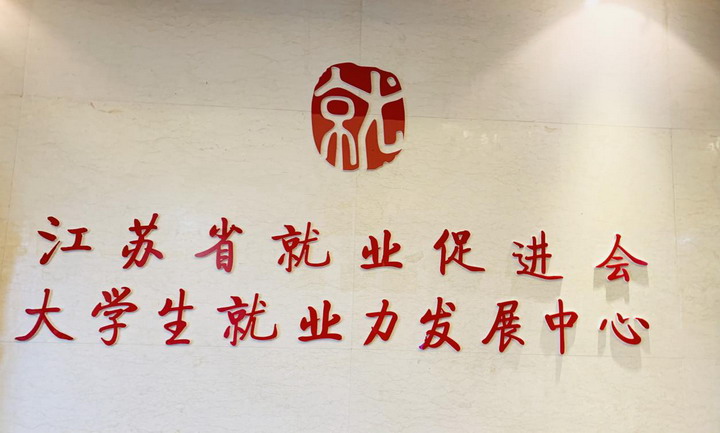 就
江苏省就业促进会
大学生就业力发展中心